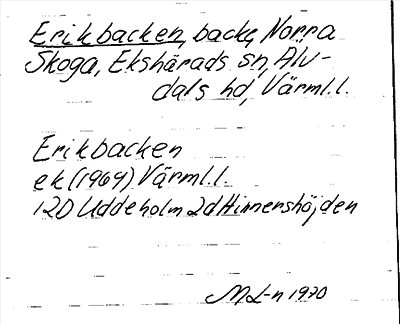 Erikbacken, backe, Norra
Skoga, Ekshärads sn, Älv-
dals hd, Värml.l.
Erikbacken
ek (1969) Värml.l.
12D Uddeholm 2d Hinnershöjden
M L-n 1970